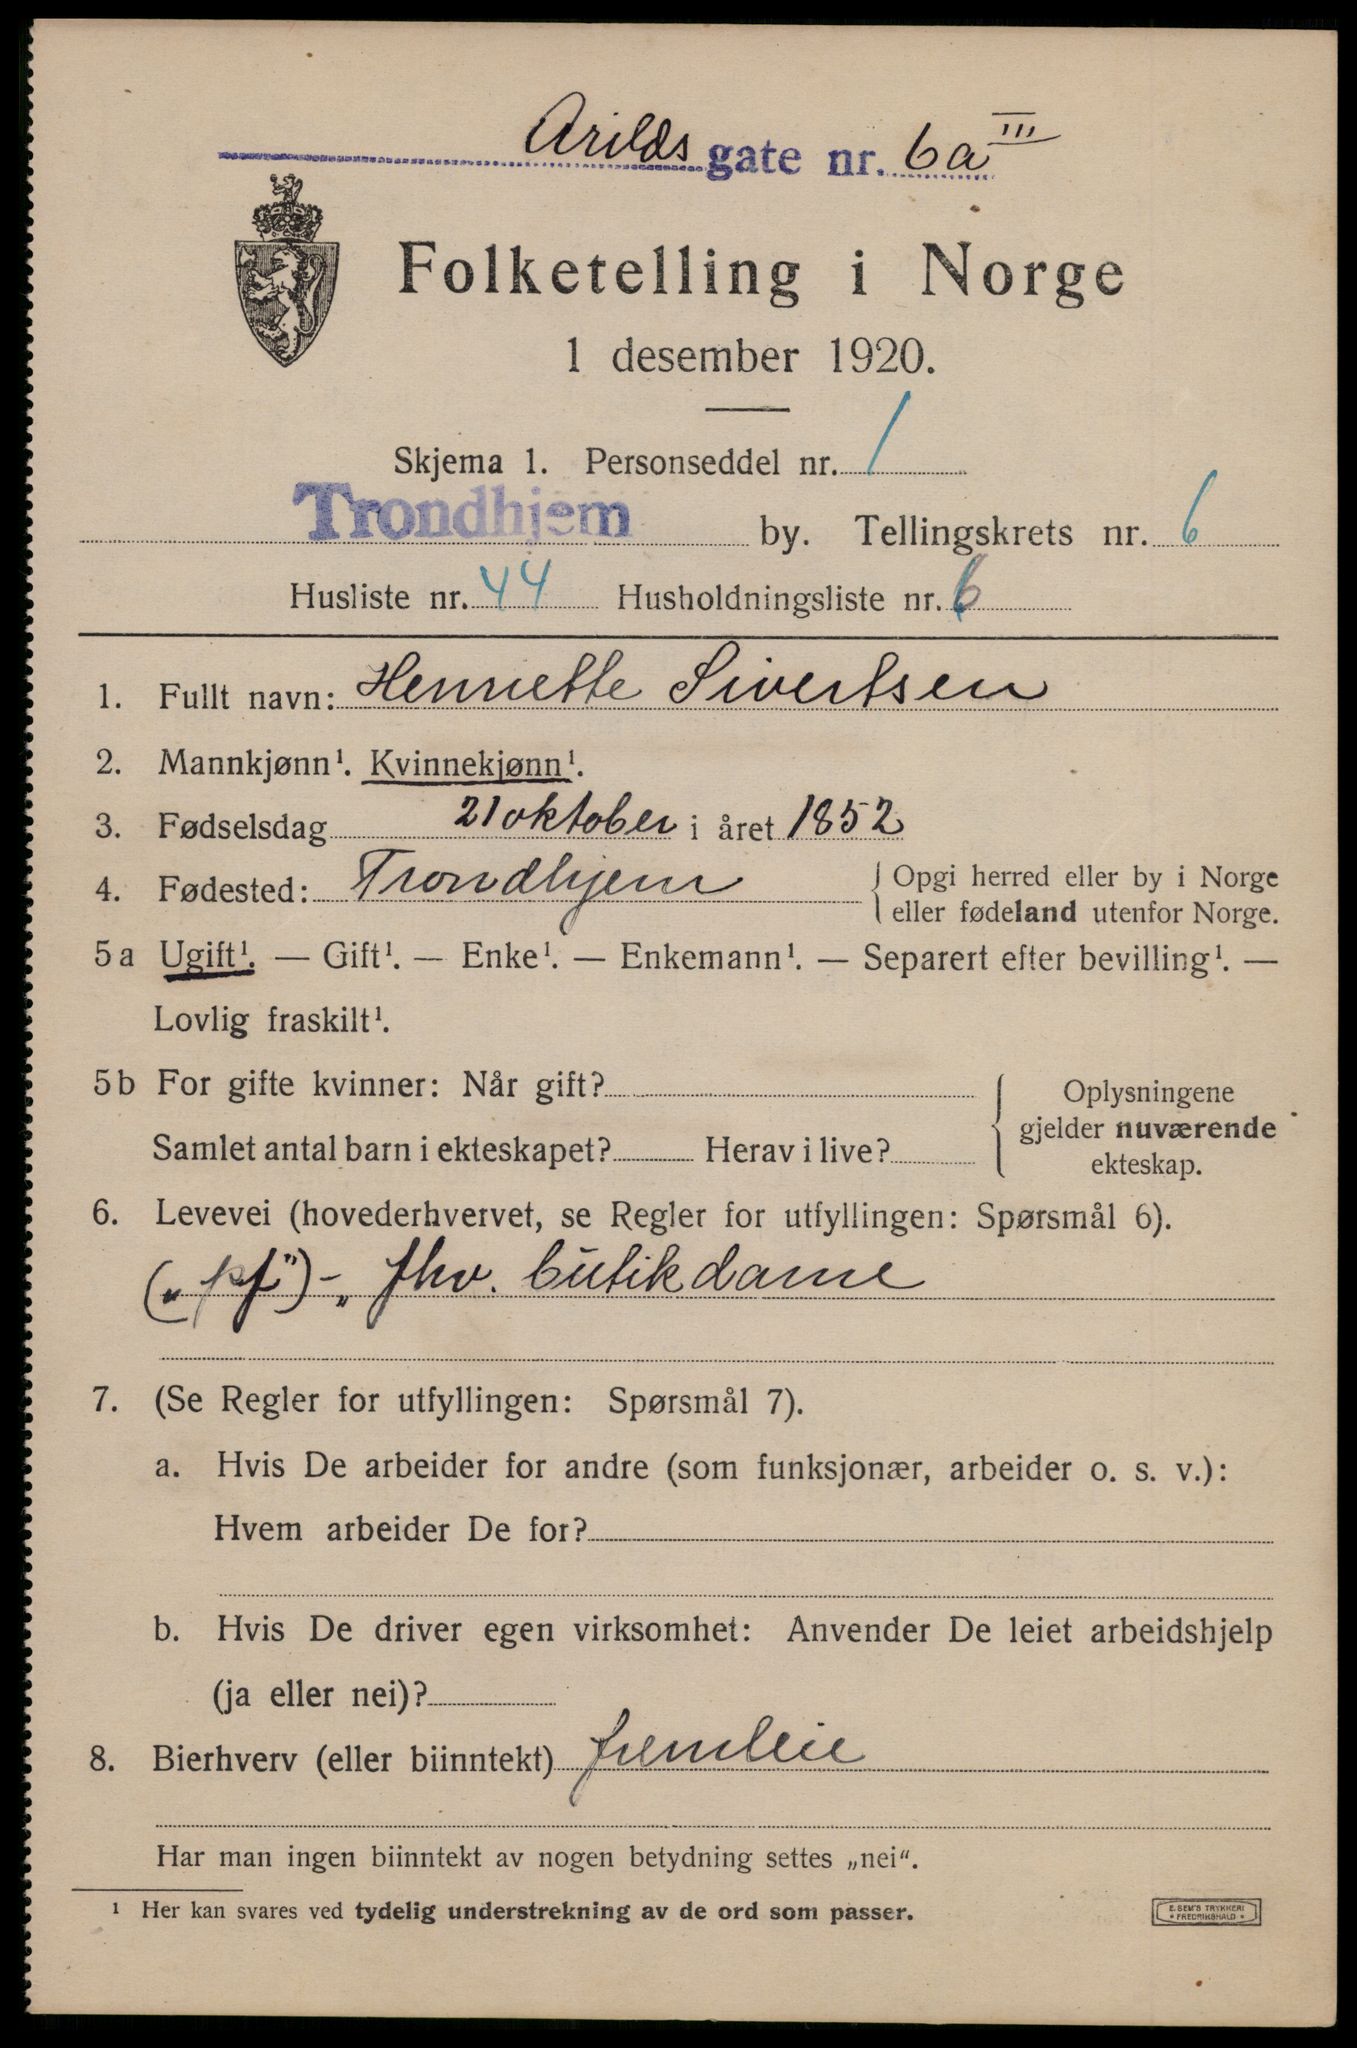 Arilds gate nr. 6a III
Folketelling i Norge
1 desember 1920.
Skjema 1. Personseddel nr. 1
Trondhjem by. Tellingskrets nr. 6
Husliste nr. 44 Husholdningsliste nr. 6
1. Fullt navn: Henriette Sivertsen
2. Mannkjønn¹. Kvinnekjønn¹.
3. Fødselsdag 21 oktober i året 1852
4. Fødested: Trondhjem { Opgi herred eller by i Norge
eller fødeland utenfor Norge.
5 a Ugift¹. — Gift¹. — Enke¹. — Enkemann¹. — Separert efter bevilling¹. —
Lovlig fraskilt¹.
5 b For gifte kvinner: Når gift?
Samlet antal barn i ekteskapet? Herav i live?
{ Oplysningene
gjelder nuværende
ekteskap.
6. Levevei (hovederhvervet, se Regler for utfyllingen: Spørsmål 6).
("pf") - fhv. butikdame
7. (Se Regler for utfyllingen: Spørsmål 7).
a. Hvis De arbeider for andre (som funksjonær, arbeider o. s. v.):
Hvem arbeider De for?
b. Hvis De driver egen virksomhet: Anvender De leiet arbeidshjelp
(ja eller nei)?
8. Bierhverv (eller biinntekt) fremleie
Har man ingen biinntekt av nogen betydning settes „nei“.
¹ Her kan svares ved tydelig understrekning av de ord som passer.
E. SEM'S TRYKKERI
• FREDRIKSHALD •